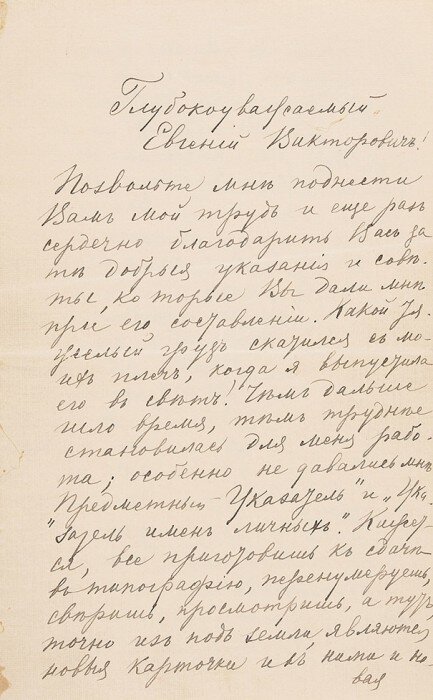 Глубокоуважаемый
Евгеній Викторовичъ!
Позвольте мнѣ поднести
Вамъ мой трудъ и еще разъ
сердечно благодарить Васъ за
тѣ добрыя указанія и совѣ-
ты, которые Вы дали мнѣ
при его составленіи. Какой тя-
желый грузъ скатился съ мо-
ихъ плечъ, когда я выпустила
его въ свѣтъ! Чѣмъ дальше
шло время, тѣмъ труднѣе
становилась для меня рабо-
та; особенно не давались мнѣ
„Предметный Указатель" и „Ука-
затель именъ личныхъ". Кажет-
ся, все приготовишь къ сдачѣ
въ типографію, перенумеруешь,
свѣришь, просмотришь, а тутъ
точно изъ подъ земли являются
новыя карточки и съ ними и но-
вая